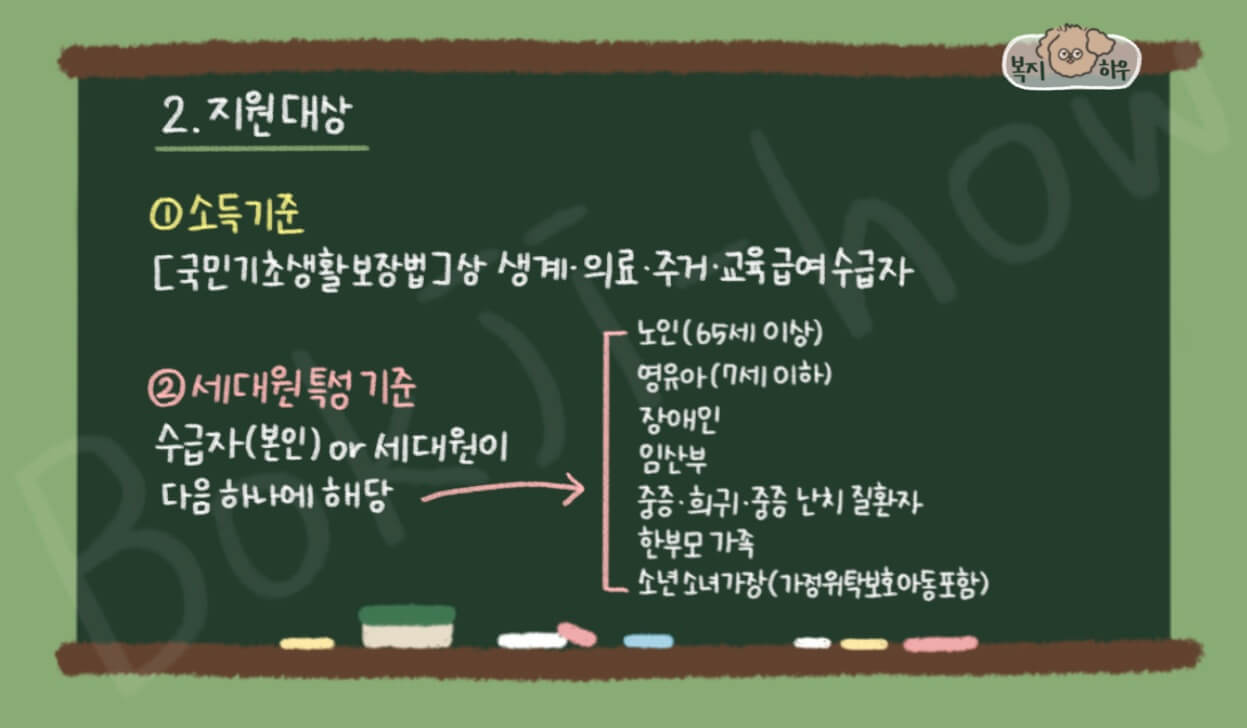 복지 하우
2. 지원대상
① 소득기준
[국민기초생활보장법]상 생계·의료·주거·교육급여 수급자
② 세대원 특성 기준
수급자(본인) or 세대원이
다음 하나에 해당
노인(65세 이상)
영유아(7세 이하)
장애인
임산부
중증·희귀·중증 난치 질환자
한부모 가족
소년소녀가장(가정위탁보호아동포함)
Bokji-how